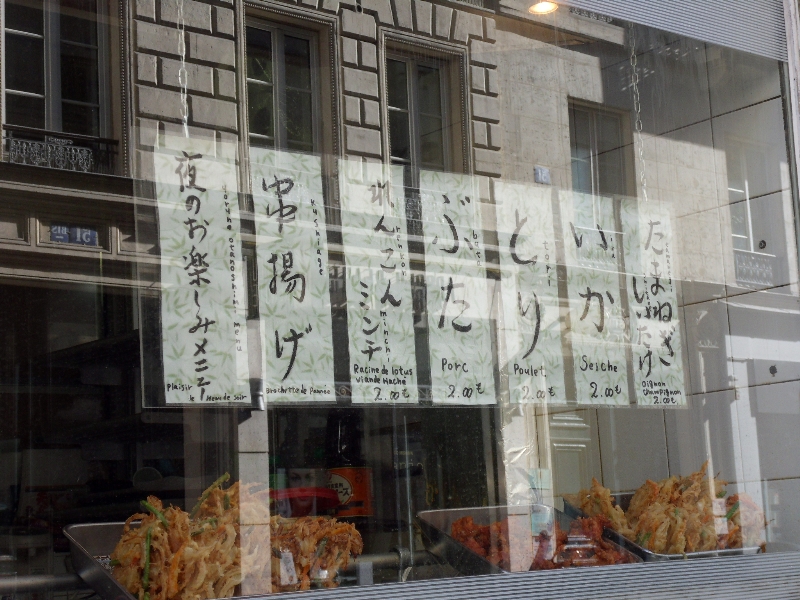 夜のお楽しみメニュー
yoruno otanoshimi menu
Plaisir
le Menu de Soir
串揚げ
Kushiage
Brochette de Pannée
れんこん
renkon
ミンチ
minchi
Racine de lotus
viande Haché
2.00€
ぶた
buta
Porc
2.00€
とり
tori
Poulet
2.00€
いか
Seiche
2.00€
たまねぎ
しいたけ
Oignon
Champignon
2.00€